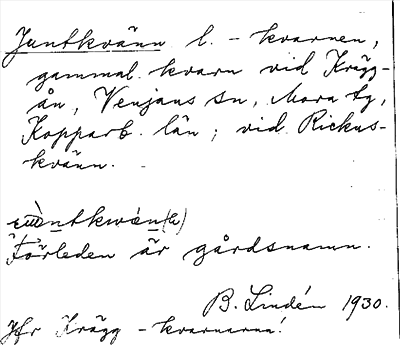 Juntkvänn l. -kvarnen,
gammal kvarn vid Krägg-
ån, Venjans sn, Mora tg,
Kopparb. län; vid Rickus-
kvänn. -
Förleden är gårdsnamn.
B. Lindén 1930.
Jfr Krägg-kvarnarna!